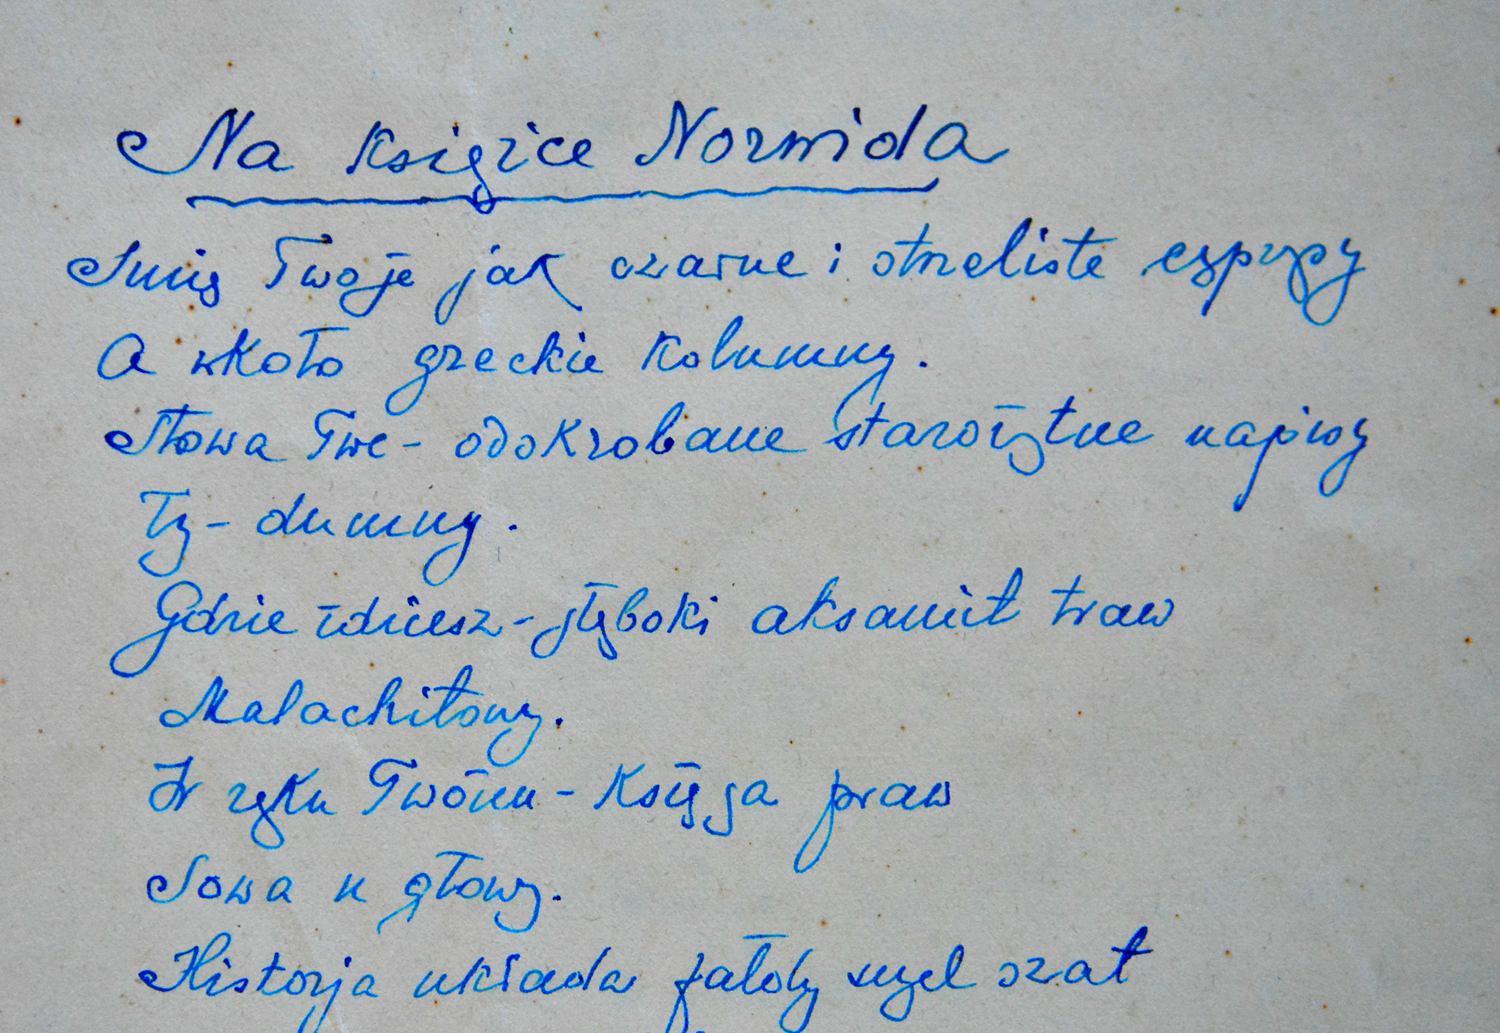 Na książce Norwida
Imię Twoje jak czarne i strzeliste cyprysy
A wkoło greckie kolumny.
Słowa Twe - odskrobane starożytne napisy
Ty - dumny.
Gdzie idziesz - głęboki aksamit traw
Malachitowy.
W ręku Twoim - Księga praw
Sowa u głowy.
Historja układa fałdy szat